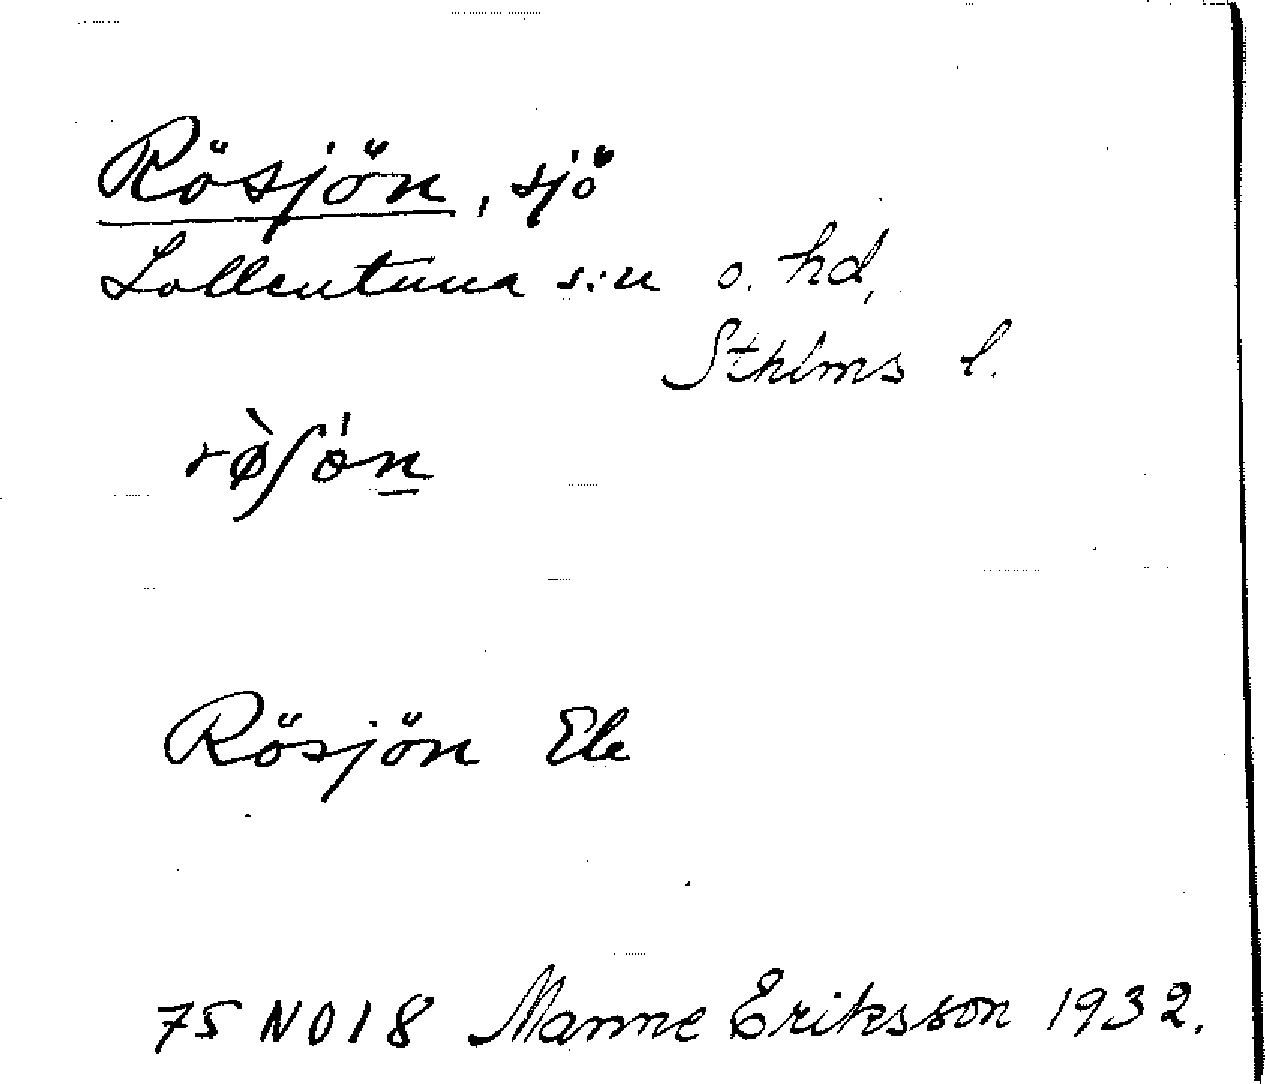 Rösjön, sjö
Sollentuna s:n o. hd,
Sthlms l.
rø̀ʃön
Rösjön Ek
75 NO 18 Manne Eriksson 1932.